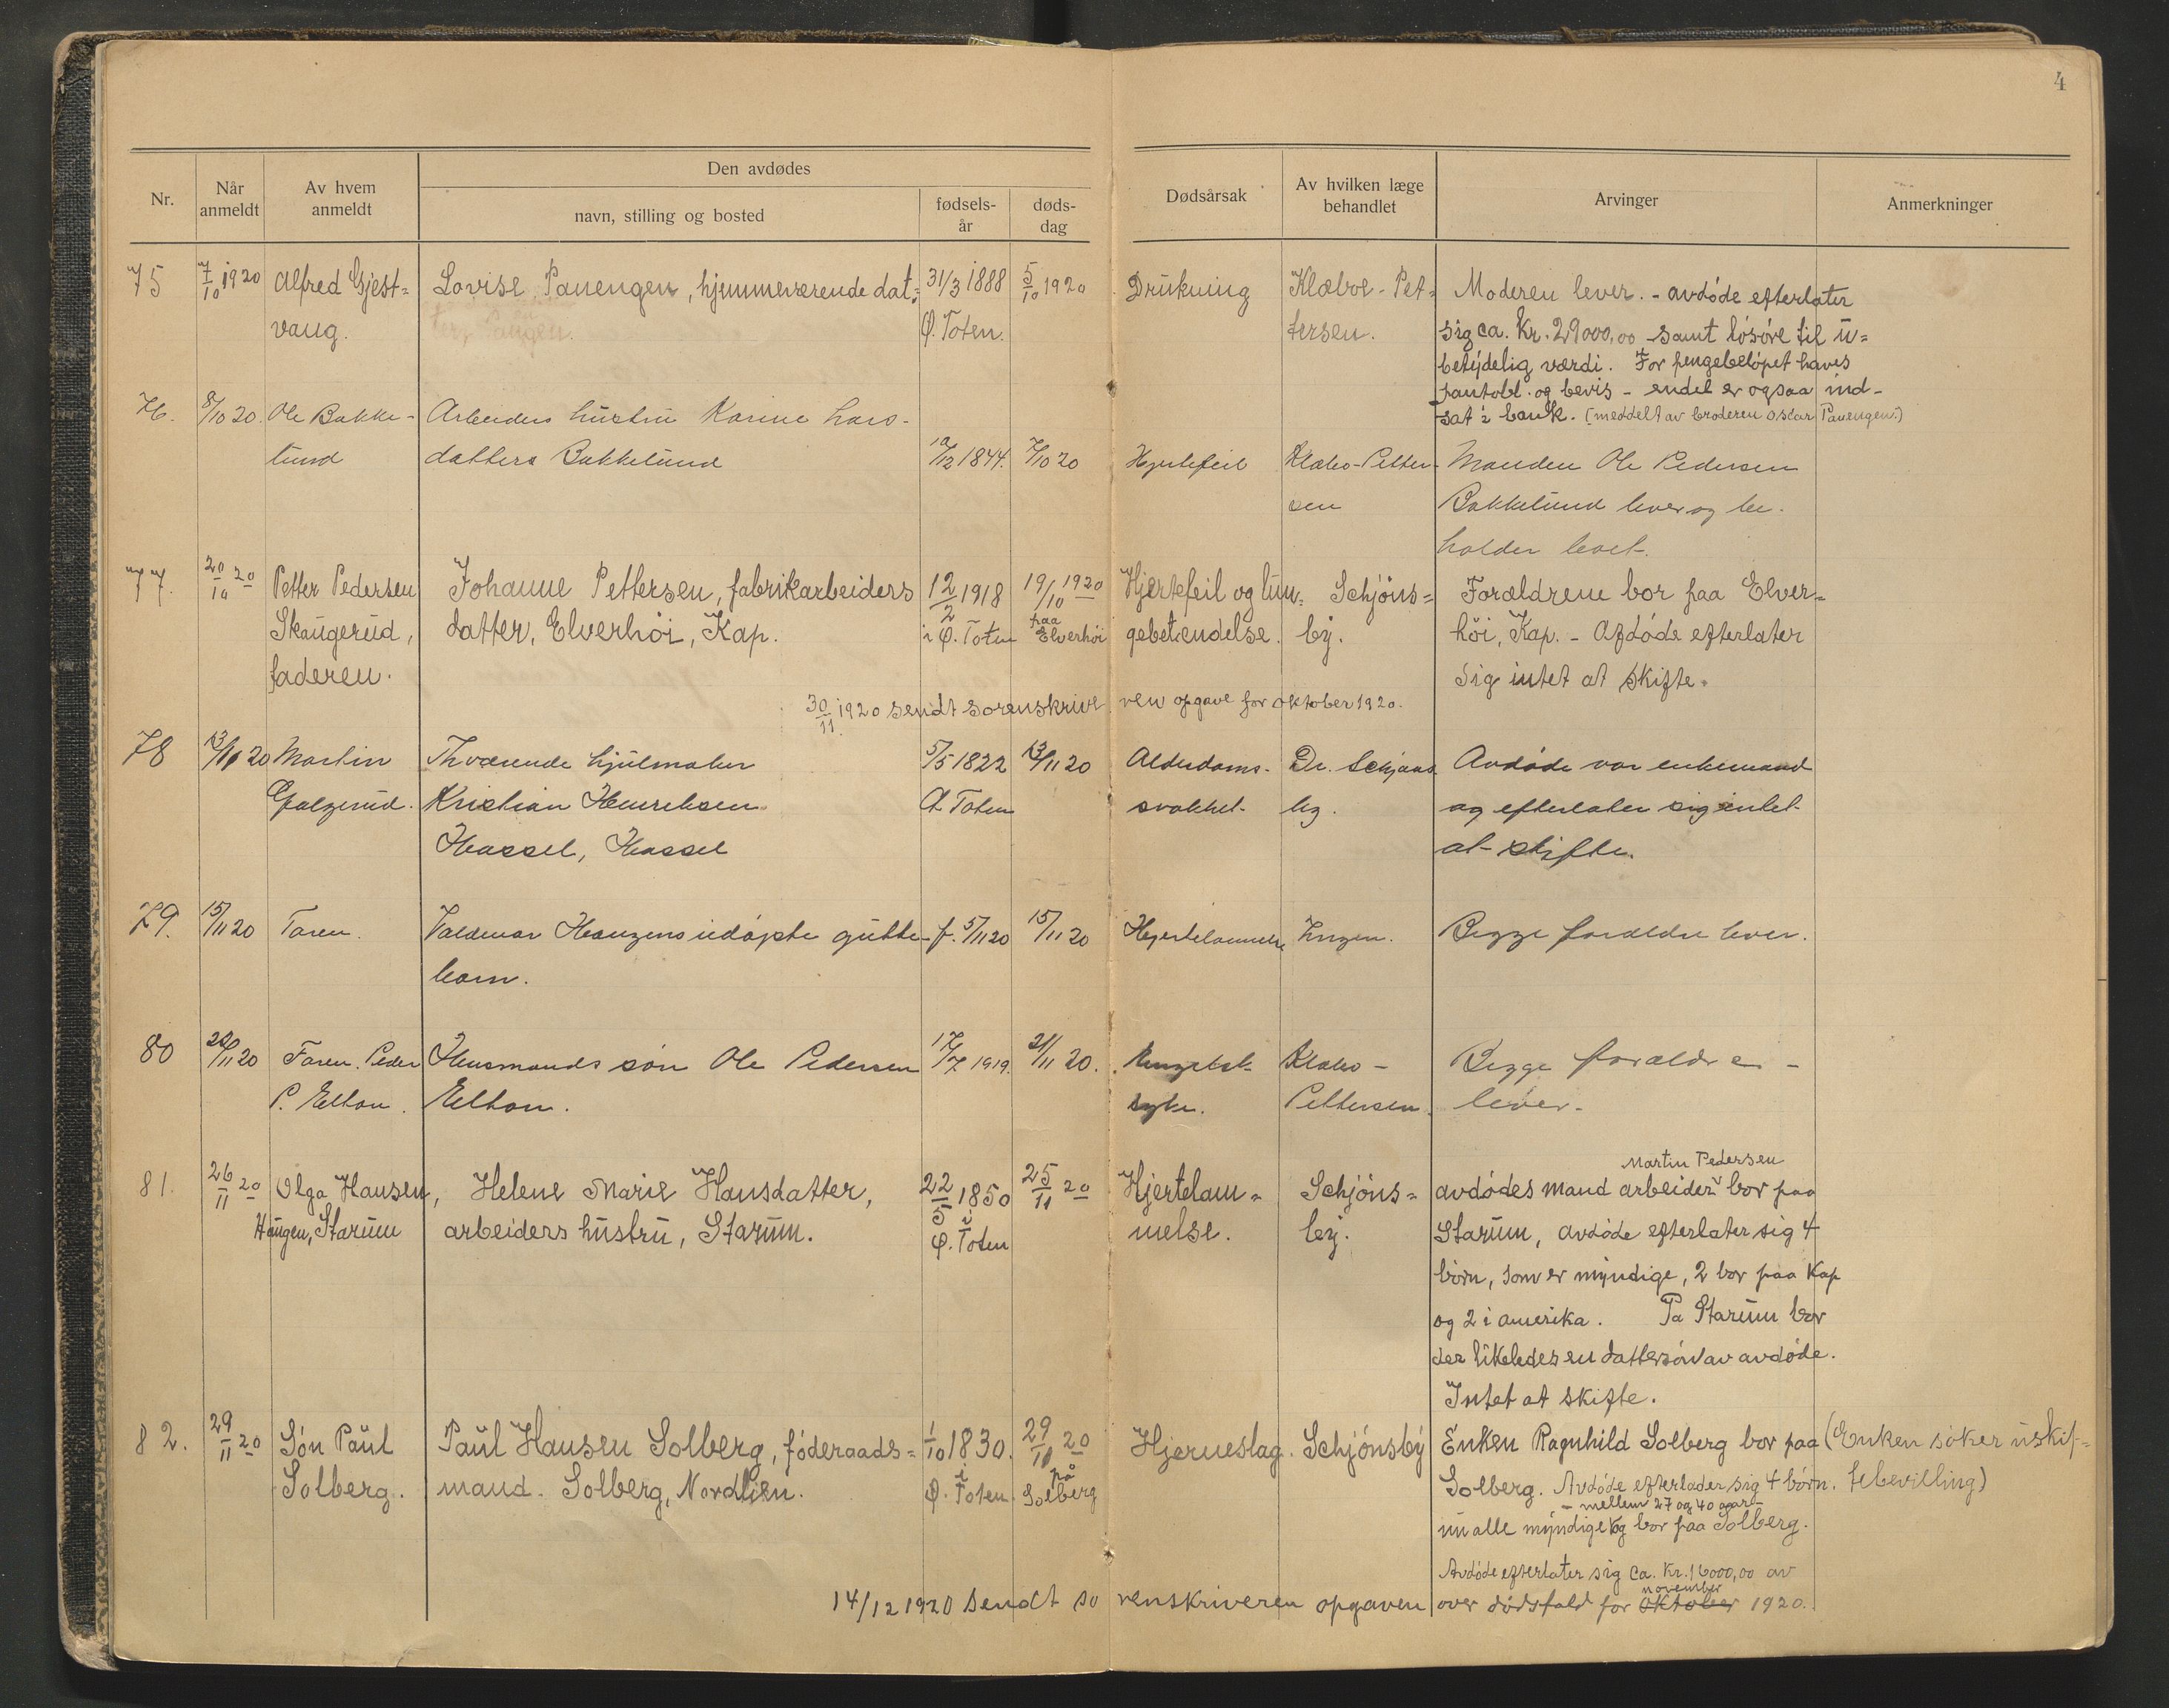 4
Nr.
Når
anmeldt
Av hvem
anmeldt
Den avdødes
navn, stilling og bosted
fødsels-
år
døds-
dag
Dødsårsak
Av hvilken læge
behandlet
Arvinger
Anmerkninger
75
7/10 1920
Alfred Gjest=
vang.
Lovise Pauengen, hjemmeværende dat=
ter,
31/3 1888
Ø. Toten.
5/10 1920
Drukning
Klæboe-Pet=
tersen.
Moderen lever. - avdøde efterlater
sig ca. Kr. 29000,00 samt løsøre til u=
betydelig værdi. For pengebeløpet haves
pantobl. og bevis - endel er ogsaa ind-
sat i bank. (meddelt av broderen Oscar Pauengen.)
76.
8/10 20.
Ole Bakke-
lund
Arbeiders hustru Karine Lars-
datters Bakkelund
10/12 1844.
7/10 20
Hjertefeil
Klæbo-Petter-
sen
Manden Ole Pedersen
Bakkelund lever og be-
holder boet.
77.
20/10 20
Petter Pedersen
Skaugerud,
faderen.
Johanne Pettersen, fabrikarbeiders
datter, Elverhøi, Kap.
12/2 1918
i Ø. Toten
19/10 1920
paa
Elverhöi
Hjertefeil og lun=
gebetændelse.
Schjöns=
by.
Forældrene bor paa Elver=
höi, Kap. - Afdøde efterlater
sig intet at skifte.
30/11 1920 sendt sorenskriveren opgave for oktober 1920.
78
13/11 20
Martin
Galgerud.
Fhværende hjulmaker
Kristian Henriksen
Hassel, Hassel
5/5 1822
Ø Toten
13/11 20
Alderdoms-
svakhet
Dr. Schjøns
by.
Avdøde var enkemand
og efterlater sig intet
at skifte.
79.
15/11 20
Faren.
Valdemar Haugens udøpte gutte-
barn.
f. 5/11 20
15/11 20
Hjertelammelse
Ingen.
Begge forældre lever.
80
22/11 20
Faren. Peder
P. Elton.
Husmands søn Ole Pedersen
Elton.
17/7 1919.
21/11 20.
Engelsk
syke.
Klæbo-
Pettersen.
Begge forældre -
lever.
81.
26/11 20
Olga Hansen,
Haugen, Starum
Helene Marie Hansdatter,
arbeiders hustru, Starum.
22/5 1850
i
Ø. Toten
25/11 20
Hjertelam=
melse.
Schjöns=
by.
Martin Pedersen
avdödes mand arbeider bor paa
Starum, avdøde efterlater sig 4
börn, som er myndige, 2 bor paa Kap
og 2 i amerika. Pa Starum bor
der likeledes en dattersön av avdøde.
Intet at skifte.
82.
29/11 20
Sön Paul
Solberg.
Paul Hansen Solberg, föderaads=
mand. Solberg, Nordlien.
1/10 1830.
i
Ø. Toten.
29/11 20
på
Solberg
Hjerneslag.
Schjönsby
Enken Ragnhild Solberg bor paa
Solberg. Avdøde efterlader sig 4 börn.
- mellem 27 og 40 aar -
nu alle myndige og bor paa Solberg.
Avdøde efterlater sig ca. Kr. 16000,00 av
(Enken söker uskif=
tebevilling)
november
14/12 1920 sendt sorenskriveren opgaven over dödsfald for oktober 1920.